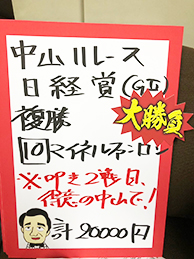 中山11レース
日経賞(GⅡ)
複勝
大勝負
10マイネルファンロン
※叩き2戦目、
得意の中山で!
計20000円